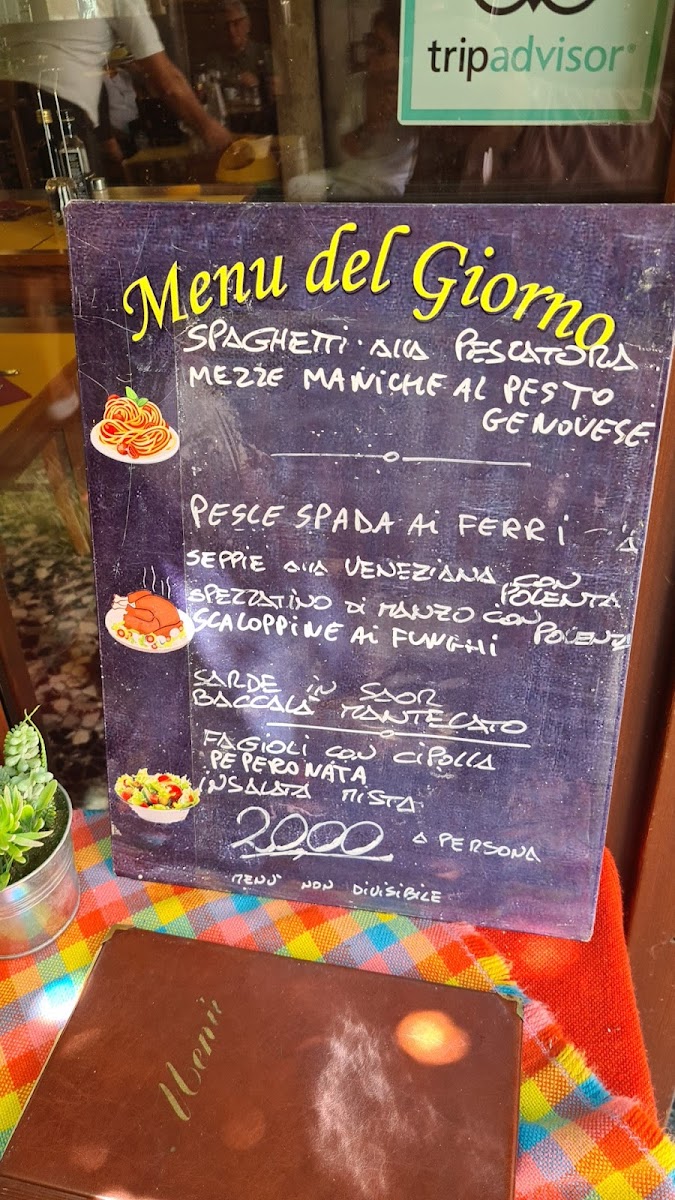 tripadvisor®
Menu del Giorno
SPAGHETTI alla PESCATORA
MEZZE MANICHE AL PESTO
GENOVESE
PESCE SPADA Ai FERRI
SEPPIE alla VENEZIANA CON
POLENTA
SPEZZATINO DI MANZO CON
POLENT
SCALOPPINE Ai FUNGHI
SARDE iN SAOR
BACCALÀ MANTECATO
FAGIOLI CON CIPOLLA
PEPERONATA
iNSALATA MISTA
20,00 A PERSONA
MENU' NON DIVISIBILE
Menù